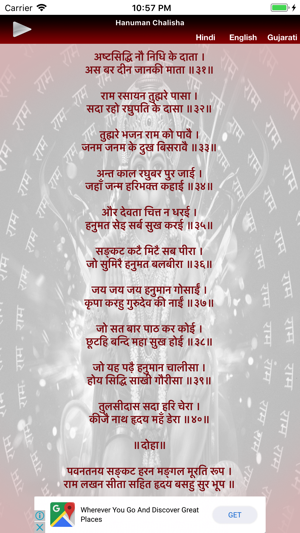 Carrier 10:57 PM
Hanuman Chalisha
Hindi English Gujarati
अष्टसिद्धि नौ निधि के दाता ।
अस बर दीन जानकी माता ॥३१॥
राम रसायन तुह्मरे पासा ।
सदा रहो रघुपति के दासा ॥३२॥
तुह्मरे भजन राम को पावै ।
जनम जनम के दुख बिसरावै ॥३३॥
अन्त काल रघुबर पुर जाई ।
जहाँ जन्म हरिभक्त कहाई ॥३४॥
और देवता चित्त न धरई ।
हनुमत सेइ सर्ब सुख करई ॥३५॥
सङ्कट कटै मिटै सब पीरा ।
जो सुमिरै हनुमत बलबीरा ॥३६॥
जय जय जय हनुमान गोसाईं ।
कृपा करहु गुरुदेव की नाईं ॥३७॥
जो सत बार पाठ कर कोई ।
छूटहि बन्दि महा सुख होई ॥३८॥
जो यह पढ़ै हनुमान चालीसा ।
होय सिद्धि साखी गौरीसा ॥३९॥
तुलसीदास सदा हरि चेरा ।
कीजै नाथ हृदय महँ डेरा ॥४०॥
॥दोहा॥
पवनतनय सङ्कट हरन मङ्गल मूरति रूप ।
राम लखन सीता सहित हृदय बसहु सुर भूप ॥
Wherever You Go And Discover Great
Places
GET